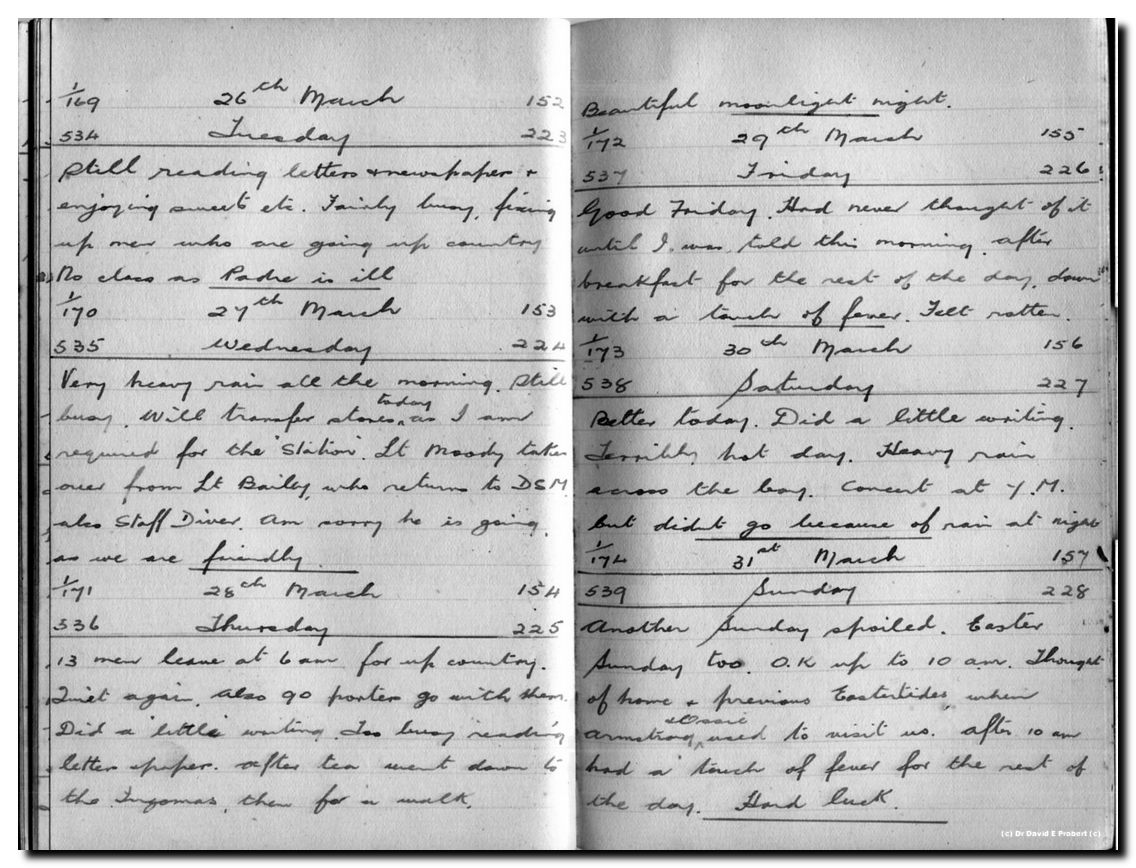 1/169 26th March 152
534 Tuesday 223
Still reading letters & newspaper &
enjoying sweets etc. Fairly busy, fixing
up men who are going up country
No class as Padre is ill
1/170 27th March 153
535 Wednesday 224
Very heavy rain all the morning. Still
busy. Will transfer stores today as I am
required for the 'Station'. Lt Moody takes
over from Lt Bailey, who returns to DSM
also Staff Diver. Am sorry he is going.
as we are friendly.
1/171 28th March 154
536 Thursday 225
13 men leave at 6 am for up country.
Quiet again, also 90 porters go with them.
Did a little writing. Too busy reading
letter & paper. After tea went down to
the Ingomas, then for a walk.
Beautiful moonlight night.
1/172 29th March 155
537 Friday 226
Good Friday. Had never thought of it
until I was told this morning after
breakfast for the rest of the day, down
with a touch of fever. Felt rotten.
1/173 30th March 156
538 Saturday 227
Better today. Did a little writing.
Terribly hot day. Heavy rain
across the bay. Concert at Y.M.
but didnt go because of rain at night
1/174 31st March 157
539 Sunday 228
Another Sunday spoiled. Easter
Sunday too. O.K up to 10 am. Thought
of home & previous Eastertides, when
Armstrong & Ossie used to visit us. After 10 am
had a touch of fever for the rest of
the day. Hard luck.
(c) Dr David E Probert (c)